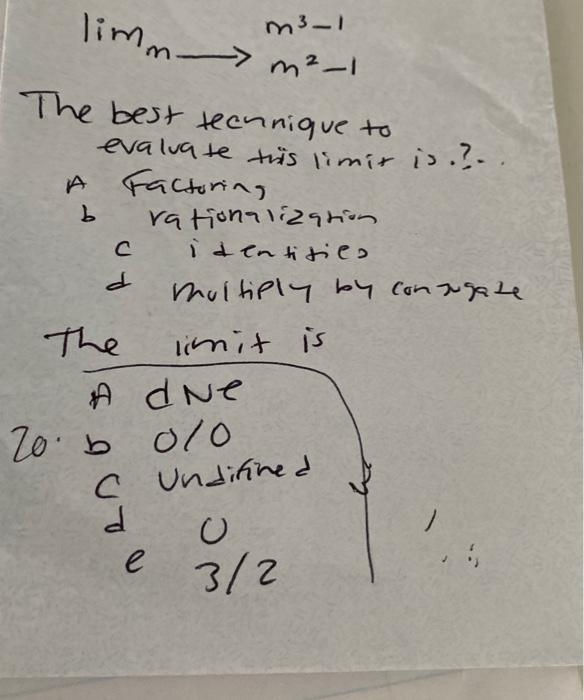 lim m → m³-1
m²-1
The best technique to
evaluate this limit is.?...
A Factoring
b rationalization
c identities
d multiply by conjugate
The limit is
A dNe
20. b 0/0
C Undifined
d 0
e 3/2